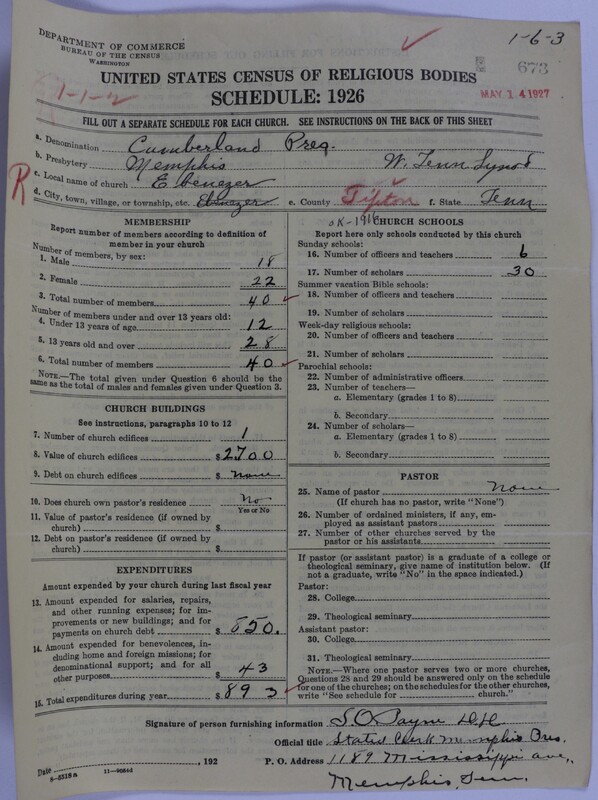 DEPARTMENT OF COMMERCE
BUREAU OF THE CENSUS
WASHINGTON
1-6-3
673
UNITED STATES CENSUS OF RELIGIOUS BODIES
1-1-2
SCHEDULE: 1926
MAY 14 1927
FILL OUT A SEPARATE SCHEDULE FOR EACH CHURCH. SEE INSTRUCTIONS ON THE BACK OF THIS SHEET
a. Denomination Cumberland Pres.
b. Presbytery Memphis W. Tenn Synod
R
c. Local name of church Ebenezer
d. City, town, village, or township, etc. Ebenezer e. County Tipton f. State Tenn
OK-1916
MEMBERSHIP
Report number of members according to definition of member in your church
Number of members, by sex:
1. Male 18
2. Female 22
3. Total number of members 40
Number of members under and over 13 years old:
4. Under 13 years of age 12
5. 13 years old and over 28
6. Total number of members 40
NOTE.—The total given under Question 6 should be the
same as the total of males and females given under Question 3.
CHURCH BUILDINGS
See instructions, paragraphs 10 to 12
7. Number of church edifices 1
8. Value of church edifices $2700
9. Debt on church edifices $ none
10. Does church own pastor's residence No
Yes or No
11. Value of pastor's residence (if owned by
church) $
12. Debt on pastor's residence (if owned by
church) $
EXPENDITURES
Amount expended by your church during last fiscal year
13. Amount expended for salaries, repairs,
and other running expenses; for im-
provements or new buildings; and for
payments on church debt $ 850.
14. Amount expended for benevolences, in-
cluding home and foreign missions; for
denominational support; and for all
other purposes 43
15. Total expenditures during year $ 893
CHURCH SCHOOLS
Report here only schools conducted by this church
Sunday schools:
16. Number of officers and teachers 6
17. Number of scholars 30
Summer vacation Bible schools:
18. Number of officers and teachers
19. Number of scholars
Week-day religious schools:
20. Number of officers and teachers
21. Number of scholars
Parochial schools:
22. Number of administrative officers
23. Number of teachers—
a. Elementary (grades 1 to 8)
b. Secondary
24. Number of scholars—
a. Elementary (grades 1 to 8)
b. Secondary
PASTOR
25. Name of pastor None
(If church has no pastor, write "None")
26. Number of ordained ministers, if any, em-
ployed as assistant pastors
27. Number of other churches served by the
pastor or his assistants
If pastor (or assistant pastor) is a graduate of a college or
theological seminary, give name of institution below. (If
not a graduate, write "No" in the space indicated.)
Pastor:
28. College
29. Theological seminary
Assistant pastor:
30. College
31. Theological seminary
NOTE.—Where one pastor serves two or more churches,
Questions 28 and 29 should be answered only on the schedule
for one of the churches; on the schedules for the other churches,
write "See schedule for church."
Signature of person furnishing information S.O. Payne
Official title Stated Clerk Memphis Pres.
Date , 192 P. O. Address 1189 Mississippi ave.,
8-5518a 11-9056d
Memphis, Tenn.